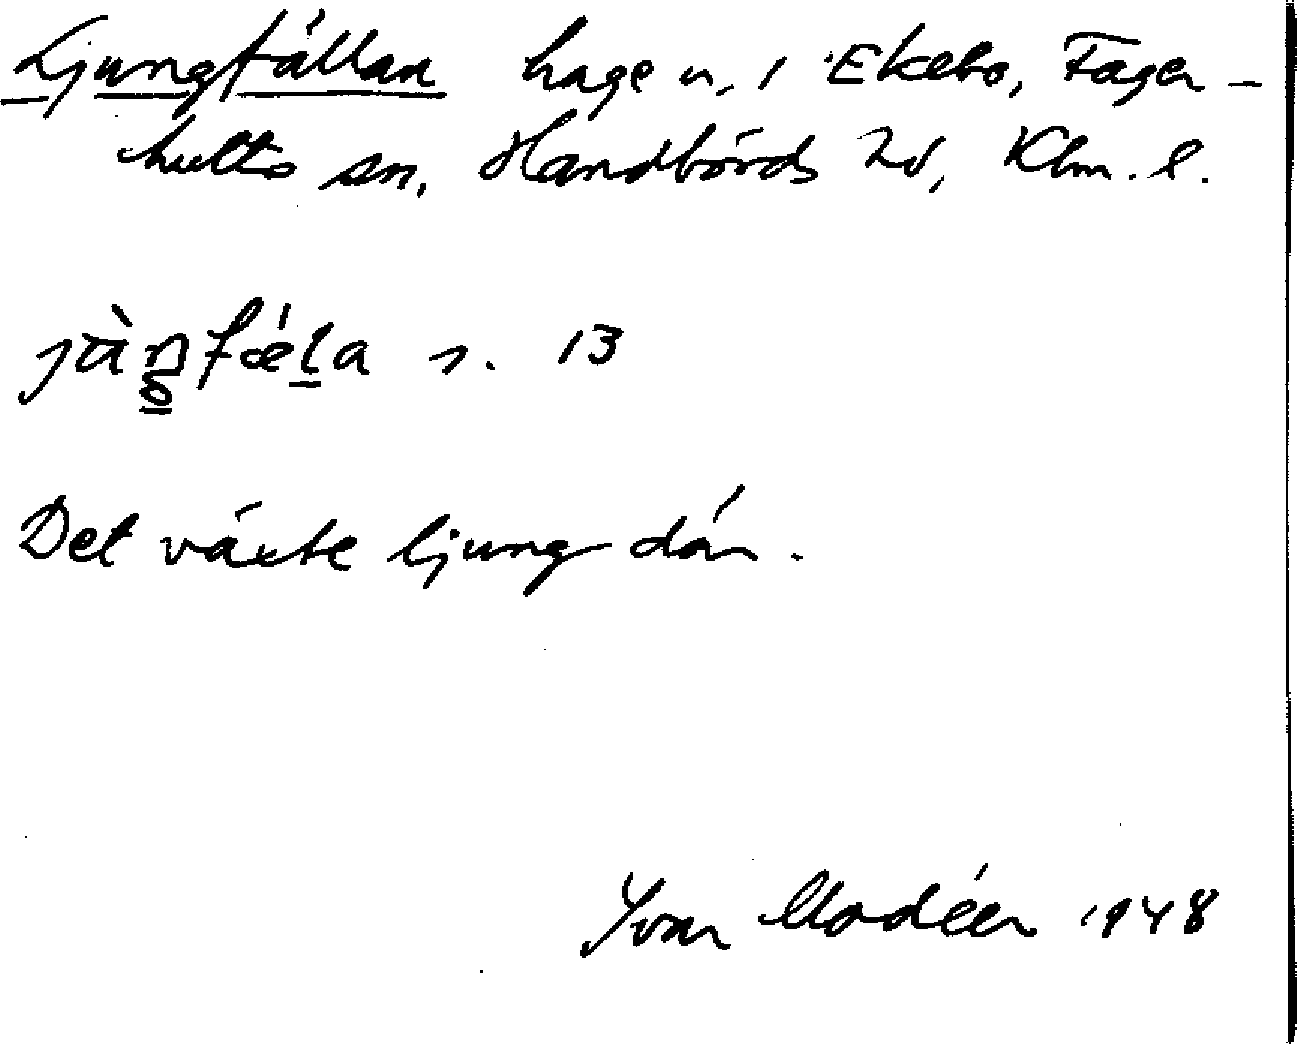 Ljungfällan hage n. 1 Ekebo, Fager-
hults sn, Handbörds hd, Klm. l.
s. 13
Det växte ljung där.
Ivar Modéer 1948